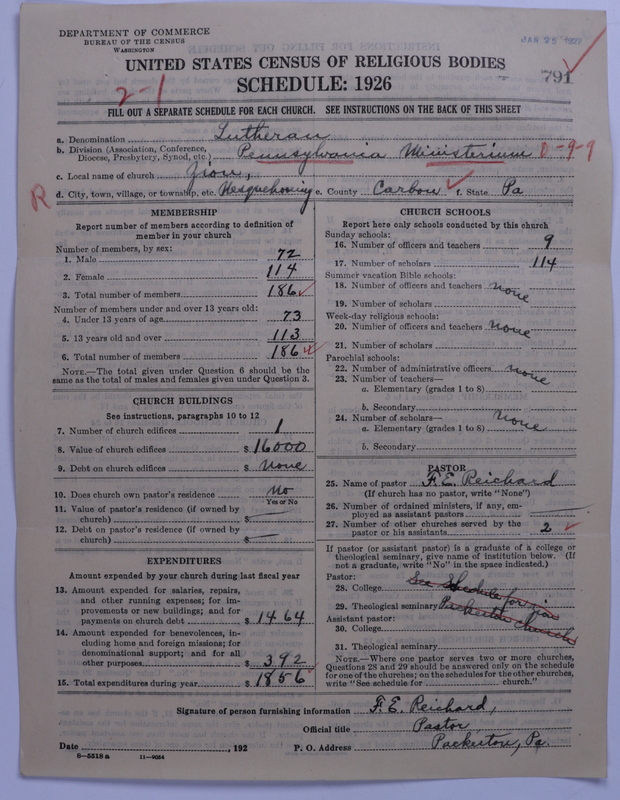 DEPARTMENT OF COMMERCE
BUREAU OF THE CENSUS
WASHINGTON
JAN 25 1927
UNITED STATES CENSUS OF RELIGIOUS BODIES
SCHEDULE: 1926
791
2-1
FILL OUT A SEPARATE SCHEDULE FOR EACH CHURCH. SEE INSTRUCTIONS ON THE BACK OF THIS SHEET
a. Denomination Lutheran
b. Division (Association, Conference, Diocese, Presbytery, Synod, etc.) Pennsylvania Ministerium 0-9-9
c. Local name of church Zion,
R
d. City, town, village, or township, etc. Nesquehoning e. County Carbon f. State Pa
MEMBERSHIP
Report number of members according to definition of
member in your church
Number of members, by sex:
1. Male 72
2. Female 114
3. Total number of members 186
Number of members under and over 13 years old:
4. Under 13 years of age 73
5. 13 years old and over 113
6. Total number of members 186
NOTE.—The total given under Question 6 should be
same as the total of males and females given under Question 3.
CHURCH BUILDINGS
See instructions, paragraphs 10 to 12
7. Number of church edifices 1
8. Value of church edifices $ 16000
9. Debt on church edifices $ none
10. Does church own pastor's residence no
Yes or No
11. Value of pastor's residence (if owned by
church) $ —
12. Debt on pastor's residence (if owned by
church) $ —
EXPENDITURES
Amount expended by your church during last fiscal year
13. Amount expended for salaries, repairs,
and other running expenses; for im-
provements or new buildings; and for
payments on church debt $ 1464
14. Amount expended for benevolences, in-
cluding home and foreign missions; for
denominational support; and for all
other purposes $ 392
15. Total expenditures during year $ 1856
CHURCH SCHOOLS
Report here only schools conducted by this church
Sunday schools:
16. Number of officers and teachers 9
17. Number of scholars 114
Summer vacation Bible schools:
18. Number of officers and teachers none
19. Number of scholars
Week-day religious schools:
20. Number of officers and teachers none
21. Number of scholars
Parochial schools:
22. Number of administrative officers none
23. Number of teachers—
a. Elementary (grades 1 to 8)
b. Secondary
24. Number of scholars— none
a. Elementary (grades 1 to 8)
b. Secondary
PASTOR
25. Name of pastor F. E. Reichard
(If church has no pastor, write "None")
26. Number of ordained ministers, if any, em-
ployed as assistant pastors —
27. Number of other churches served by the
pastor or his assistants 2
If pastor (or assistant pastor) is a graduate of a college or
theological seminary, give name of institution below. (If
not a graduate, write "No" in the space indicated.)
Pastor:
28. College See Schedule for Zion
29. Theological seminary Packerton church
Assistant pastor:
30. College
31. Theological seminary
NOTE.—Where one pastor serves two or more churches,
Questions 28 and 29 should be answered only on the schedule
for one of the churches; on the schedules for the other churches,
write "See schedule for ........ church."
Signature of person furnishing information F. E. Reichard,
Official title Pastor,
Date ........, 192 P. O. Address Packerton, Pa.
8-5518a 11-9054